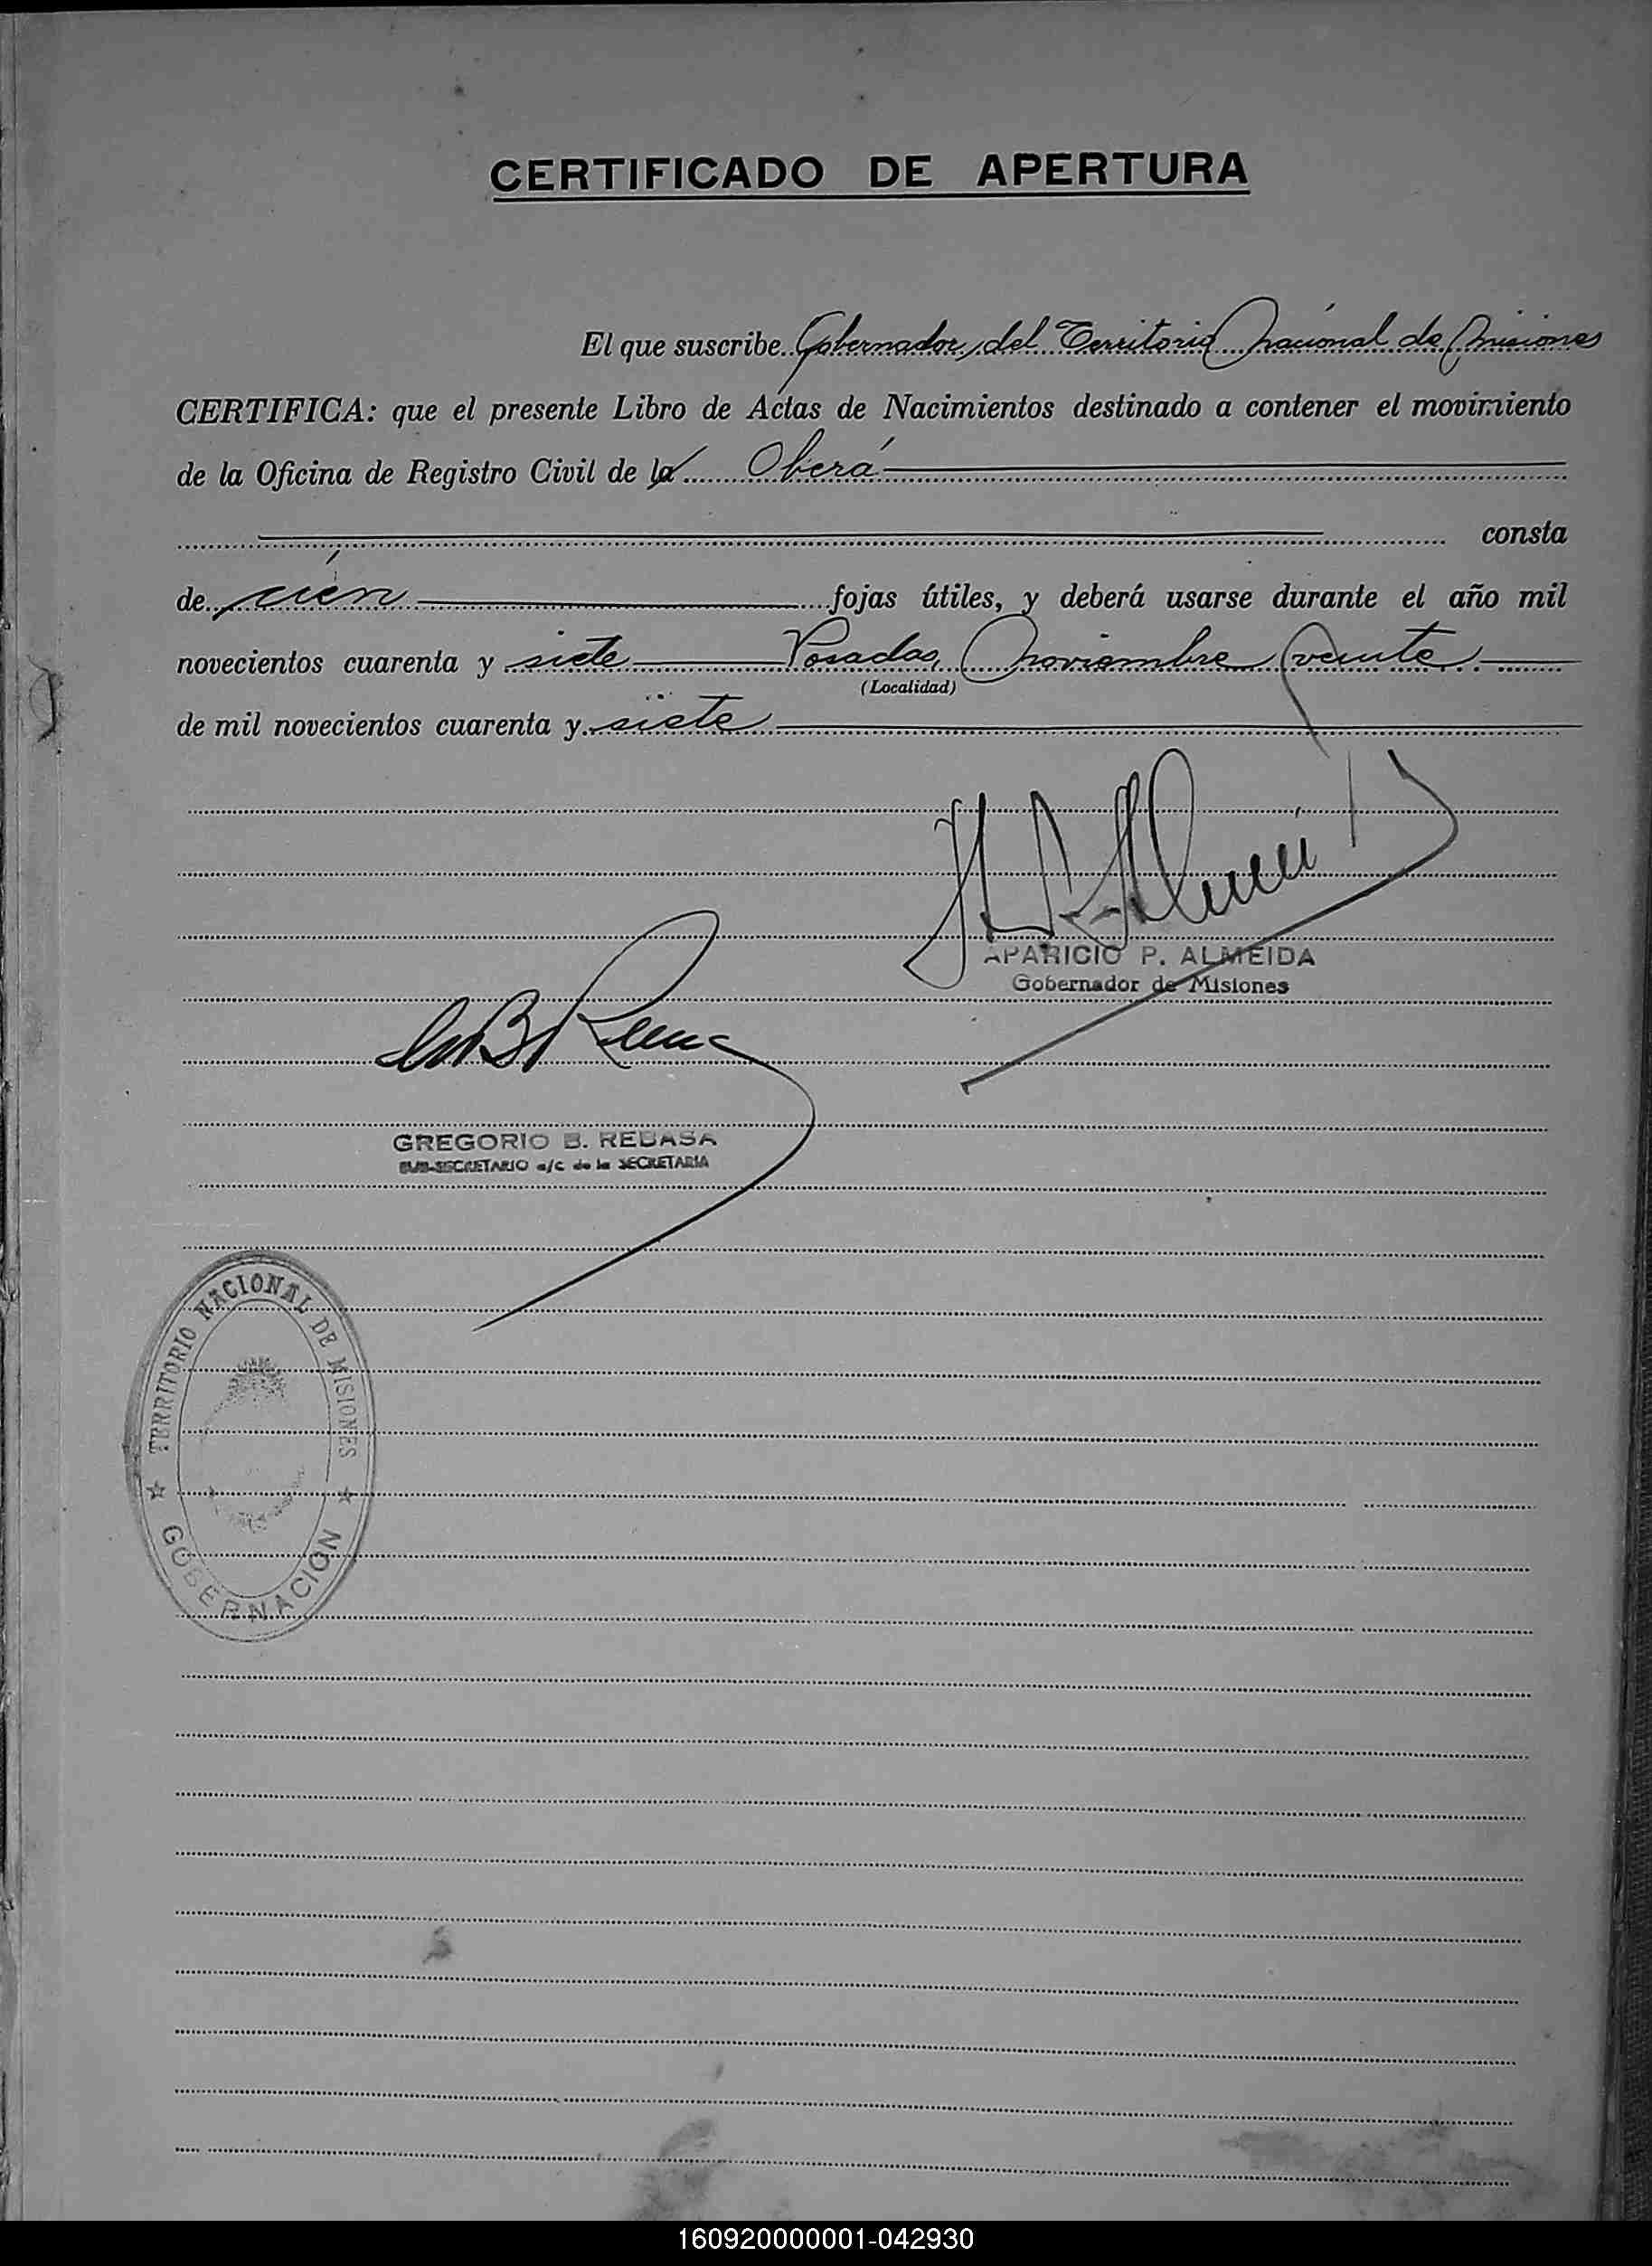 CERTIFICADO DE APERTURA
El que suscribe Gobernador del Territorio Nacional de Misiones
CERTIFICA: que el presente Libro de Actas de Nacimientos destinado a contener el movimiento
de la Oficina de Registro Civil de la Oberá
consta
de cién fojas útiles, y deberá usarse durante el año mil
novecientos cuarenta y siete Posadas, Noviembre veinte
(Localidad)
de mil novecientos cuarenta y siete
APARICIO P. ALMEIDA
Gobernador de Misiones
GREGORIO B. REBASA
SUB-SECRETARIO a/c de la SECRETARIA
TERRITORIO NACIONAL DE MISIONES
GOBERNACION
160920000001-042930